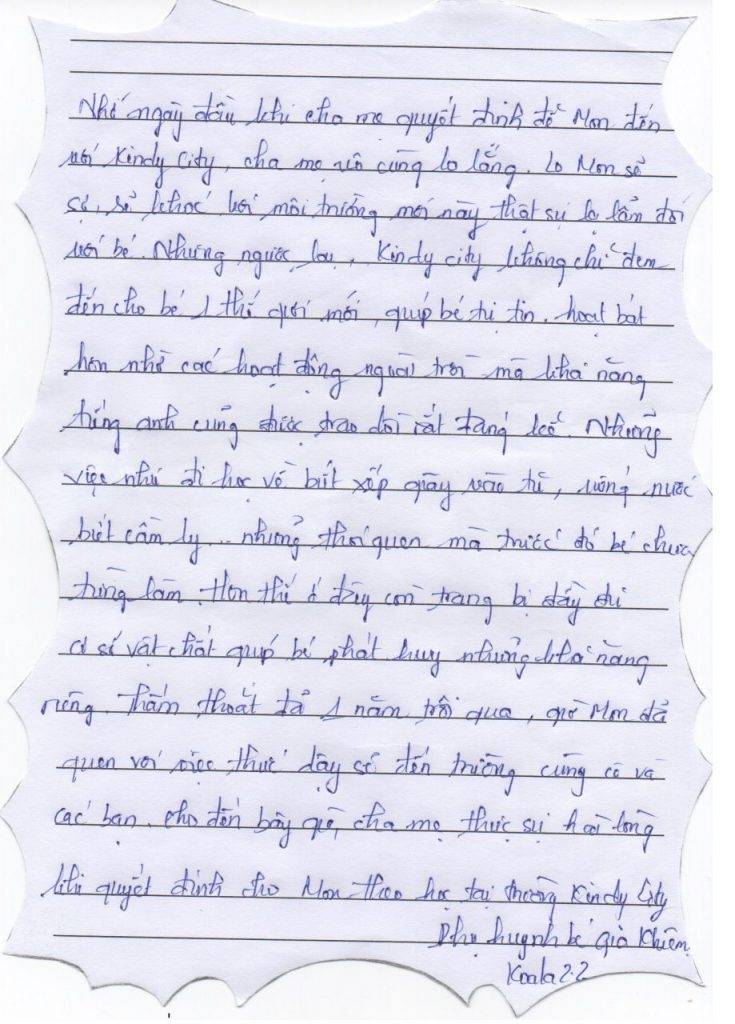 Nhớ ngày đầu khi cha mẹ quyết định để Mon đến
với Kindy City, cha mẹ vô cùng lo lắng. Lo Mon sẽ
sợ, sẽ khóc bởi môi trường mới này thật sự lạ lẫm đối
với bé. Nhưng ngược lại, Kindy city không chỉ đem
đến cho bé 1 thế giới mới, giúp bé tự tin, hoạt bát
hơn nhờ các hoạt động ngoài trời mà khả năng
tiếng anh cũng được trao dồi rất đáng kể. Những
việc như đi học về biết xếp giày vào tủ, uống nước
biết cầm ly... những thói quen mà trước đó bé chưa
từng làm. Hơn thế ở đây còn trang bị đầy đủ
cơ sở vật chất giúp bé phát huy những khả năng
riêng. Thấm thoắt đã 1 năm trôi qua, giờ Mon đã
quen với việc thức dậy sớ đến trường cùng cô và
các bạn. Cho đến bây giờ, cha mẹ thực sự hài lòng
khi quyết định cho Mon theo học tại trường Kindy City
Phụ huynh bé Gia Khiêm
Koala 2.2